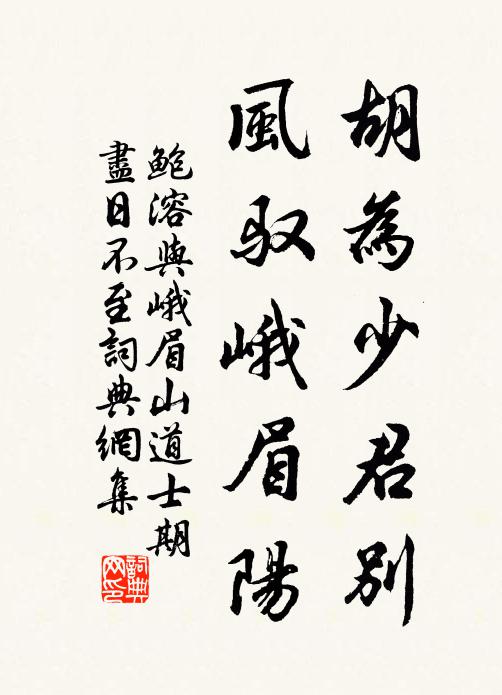 胡為少君別
風馭峨眉陽
鮑溶與峨眉山道士期
盡日不至詞典網集
詞典網印